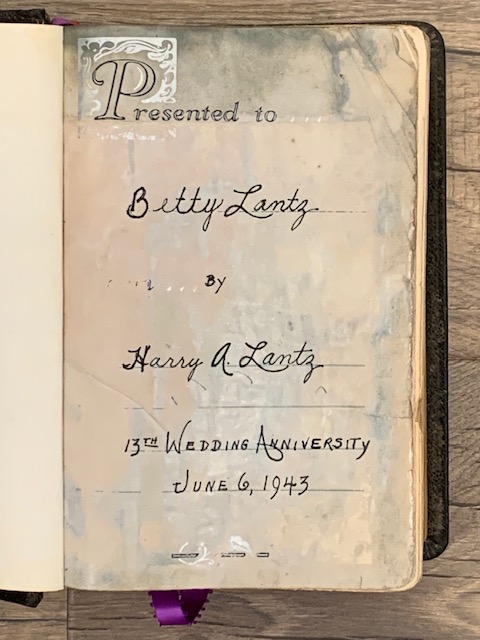 Presented to
Betty Lantz
BY
Harry A. Lantz
13TH WEDDING ANNIVERSITY
JUNE 6, 1943